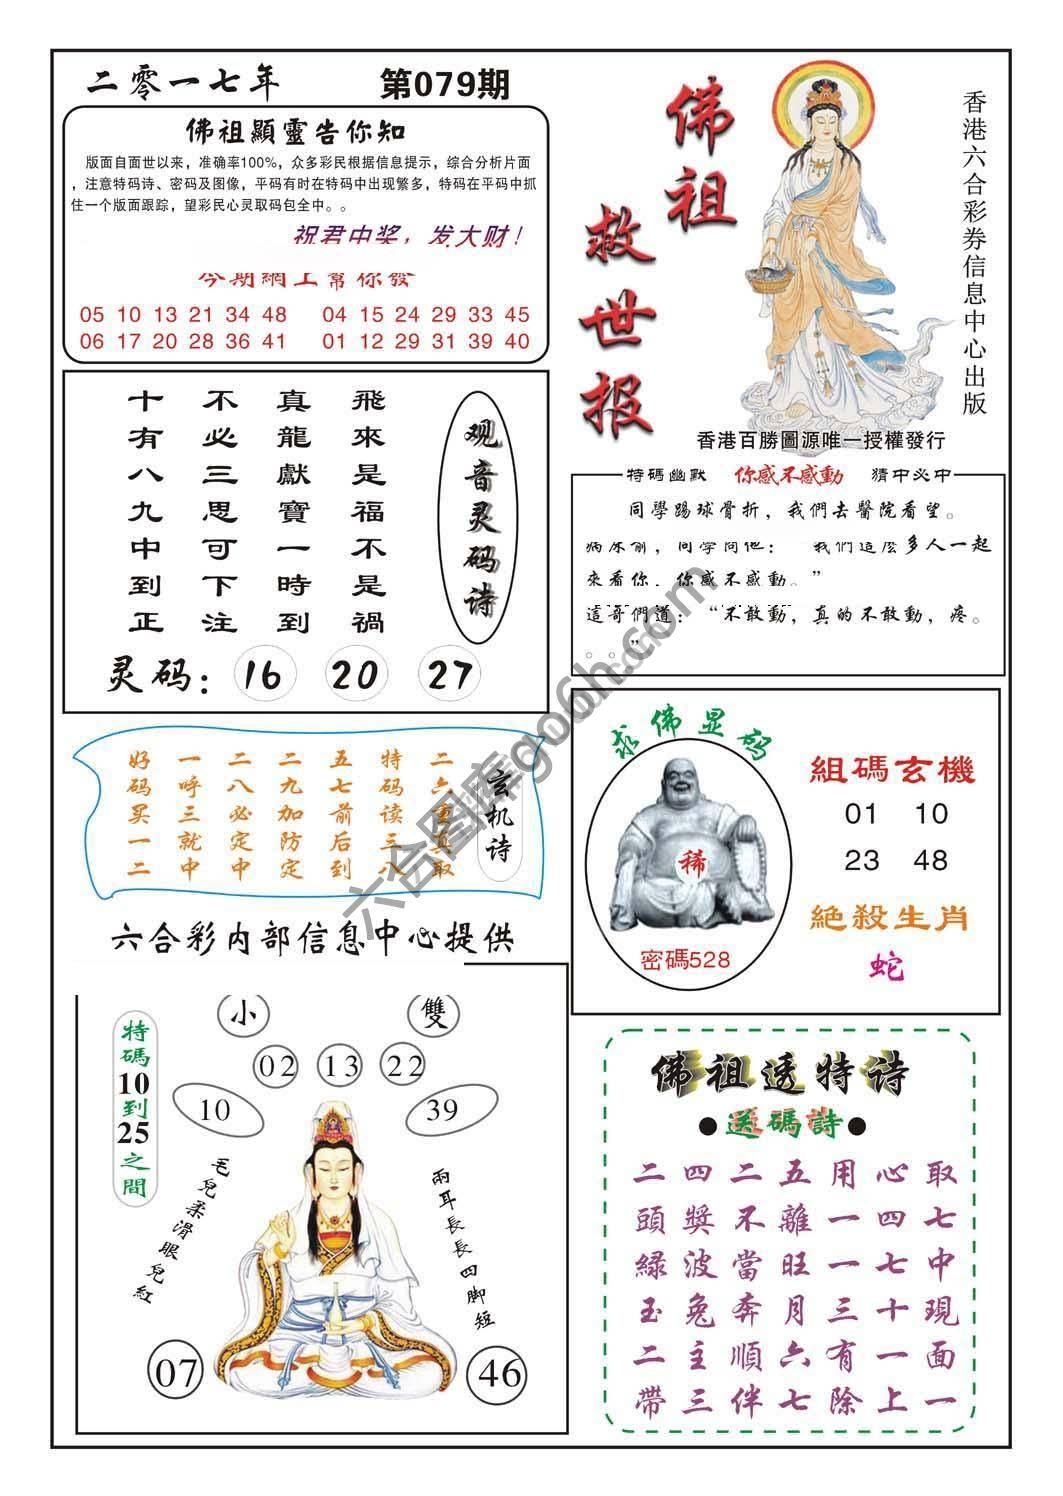 二零一七年 第079期
佛祖顯靈告你知
版面自面世以来，准确率100%，众多彩民根据信息提示，综合分析片面
，注意特码诗、密码及图像，平码有时在特码中出现繁多，特码在平码中抓
住一个版面跟踪，望彩民心灵取码包全中。。
祝君中奖，发大财！
今期網上幫你發
05 10 13 21 34 48 04 15 24 29 33 45
06 17 20 28 36 41 01 12 29 31 39 40
佛祖
救世报
香港六合彩券信息中心出版
香港百勝圖源唯一授權發行
观音灵码诗
飛來是福不是禍
真龍獻寶一時到
不必三思可下注
十有八九中到正
灵码： 16 20 27
特碼幽默 你感不感動 猜中必中
同學踢球骨折，我們去醫院看望。
病床前，同學問他： 我們這麽多人一起
來看你，你感不感動。”
這哥們道：“不敢動，真的不敢動，疼。
。。”
玄机诗
二六重真取
特码读三八
五七前后到
二九加防定
二八必定中
一呼三就中
好码买一二
六合彩内部信息中心提供
求佛显码
稀
密碼528
組碼玄機
01 10
23 48
絕殺生肖
蛇
特碼10到25之間
小 雙
02 13 22
10 39
毛兒柔滑眼兒紅
兩耳長長四脚短
07 46
佛祖透特诗
●送碼詩●
二四二五用心取
頭獎不離一四七
緑波當旺一七中
玉兔奔月三十現
二主順六有一面
帶三伴七除上一
六合图库go6h.com